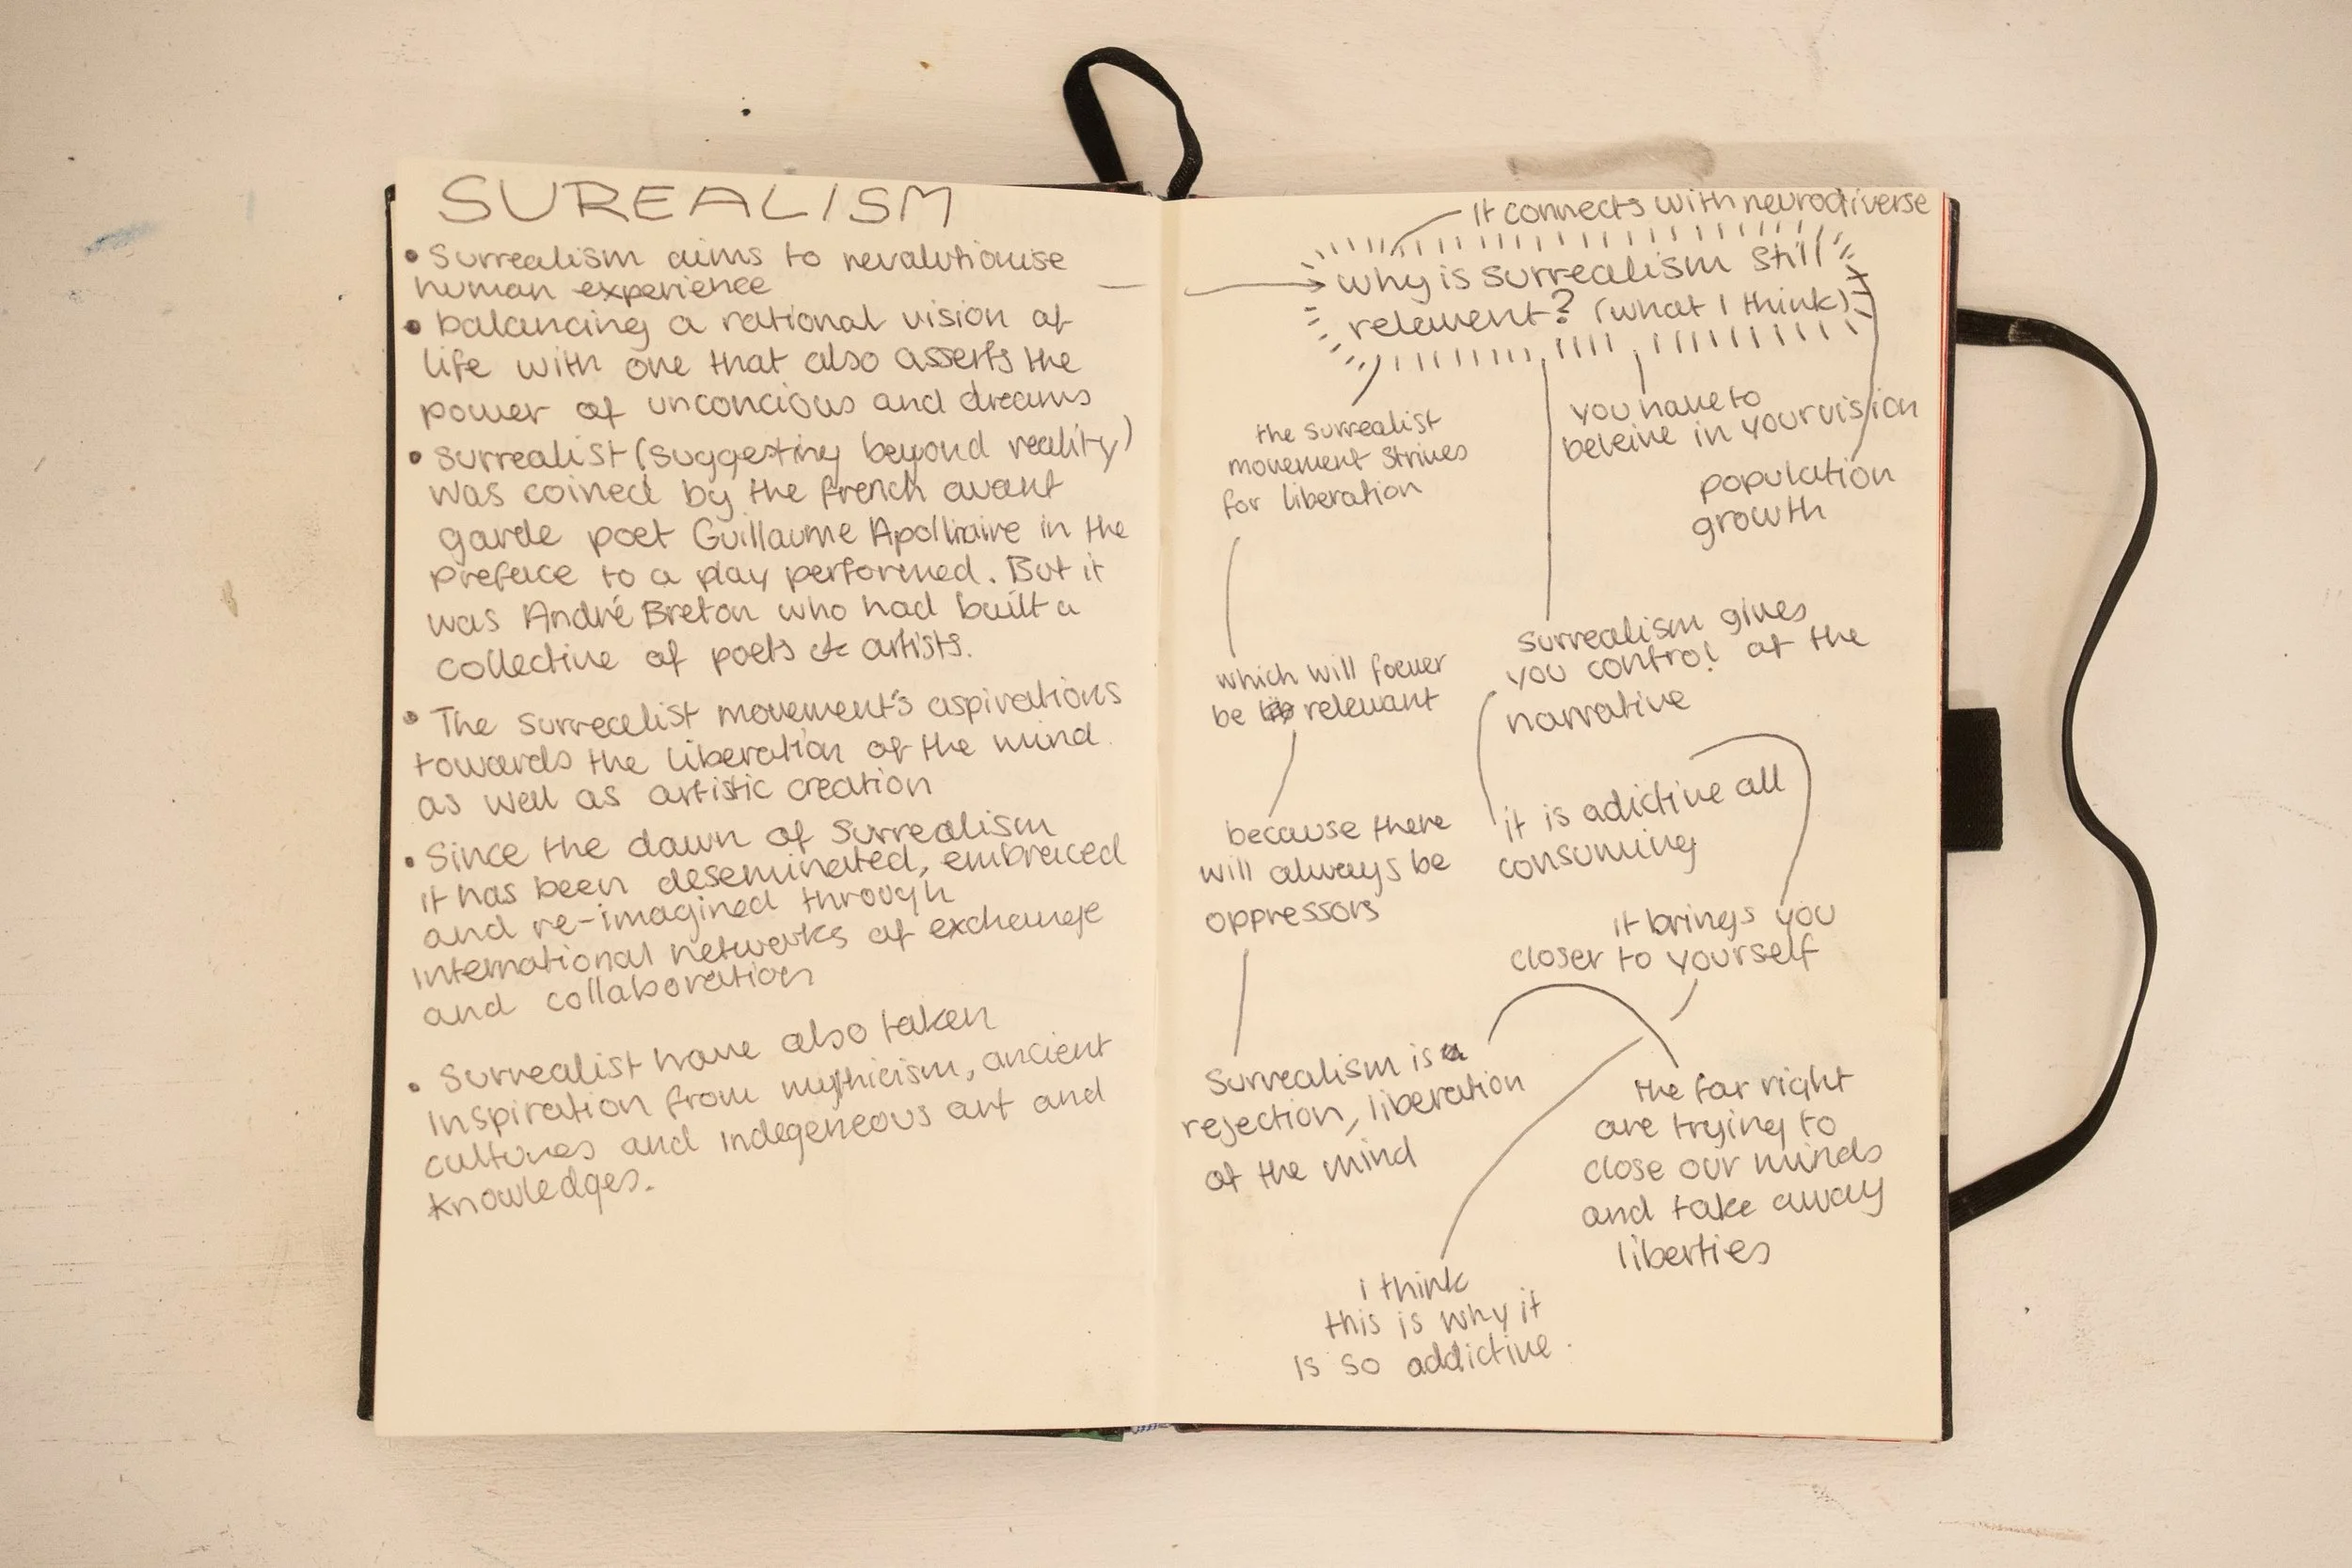 SUREALISM
• Surrealism aims to revalutionise
human experience
• balancing a rational vision of
life with one that also asserts the
power of unconcious and dreams
• surrealist (suggesting beyond reality)
was coined by the french avant
garde poet Guillaume Apollinaire in the
preface to a play performed. But it
was André Breton who had built a
collective of poets & artists.
• The surrealist movement's aspirations
towards the liberation of the mind
as well as artistic creation
• Since the dawn of surrealism
it has been deseminated, embraced
and re-imagined through
international networks of exchange
and collaboration
• Surrealist have also taken
inspiration from mythicism, ancient
cultures and indegeneous art and
knowledges.
it connects with neurodiverse
why is surrealism still
relevent? (what I think)
the surrealist
movement strives
for liberation
which will foever
be relevant
because there
will always be
oppressors
Surrealism is a
rejection, liberation
of the mind
you have to
beleive in your vision
population
growth
surrealism gives
you control of the
narrative
it is adictive all
consuming
it brings you
closer to yourself
the far right
are trying to
close our minds
and take away
liberties
I think
this is why it
is so addictive.